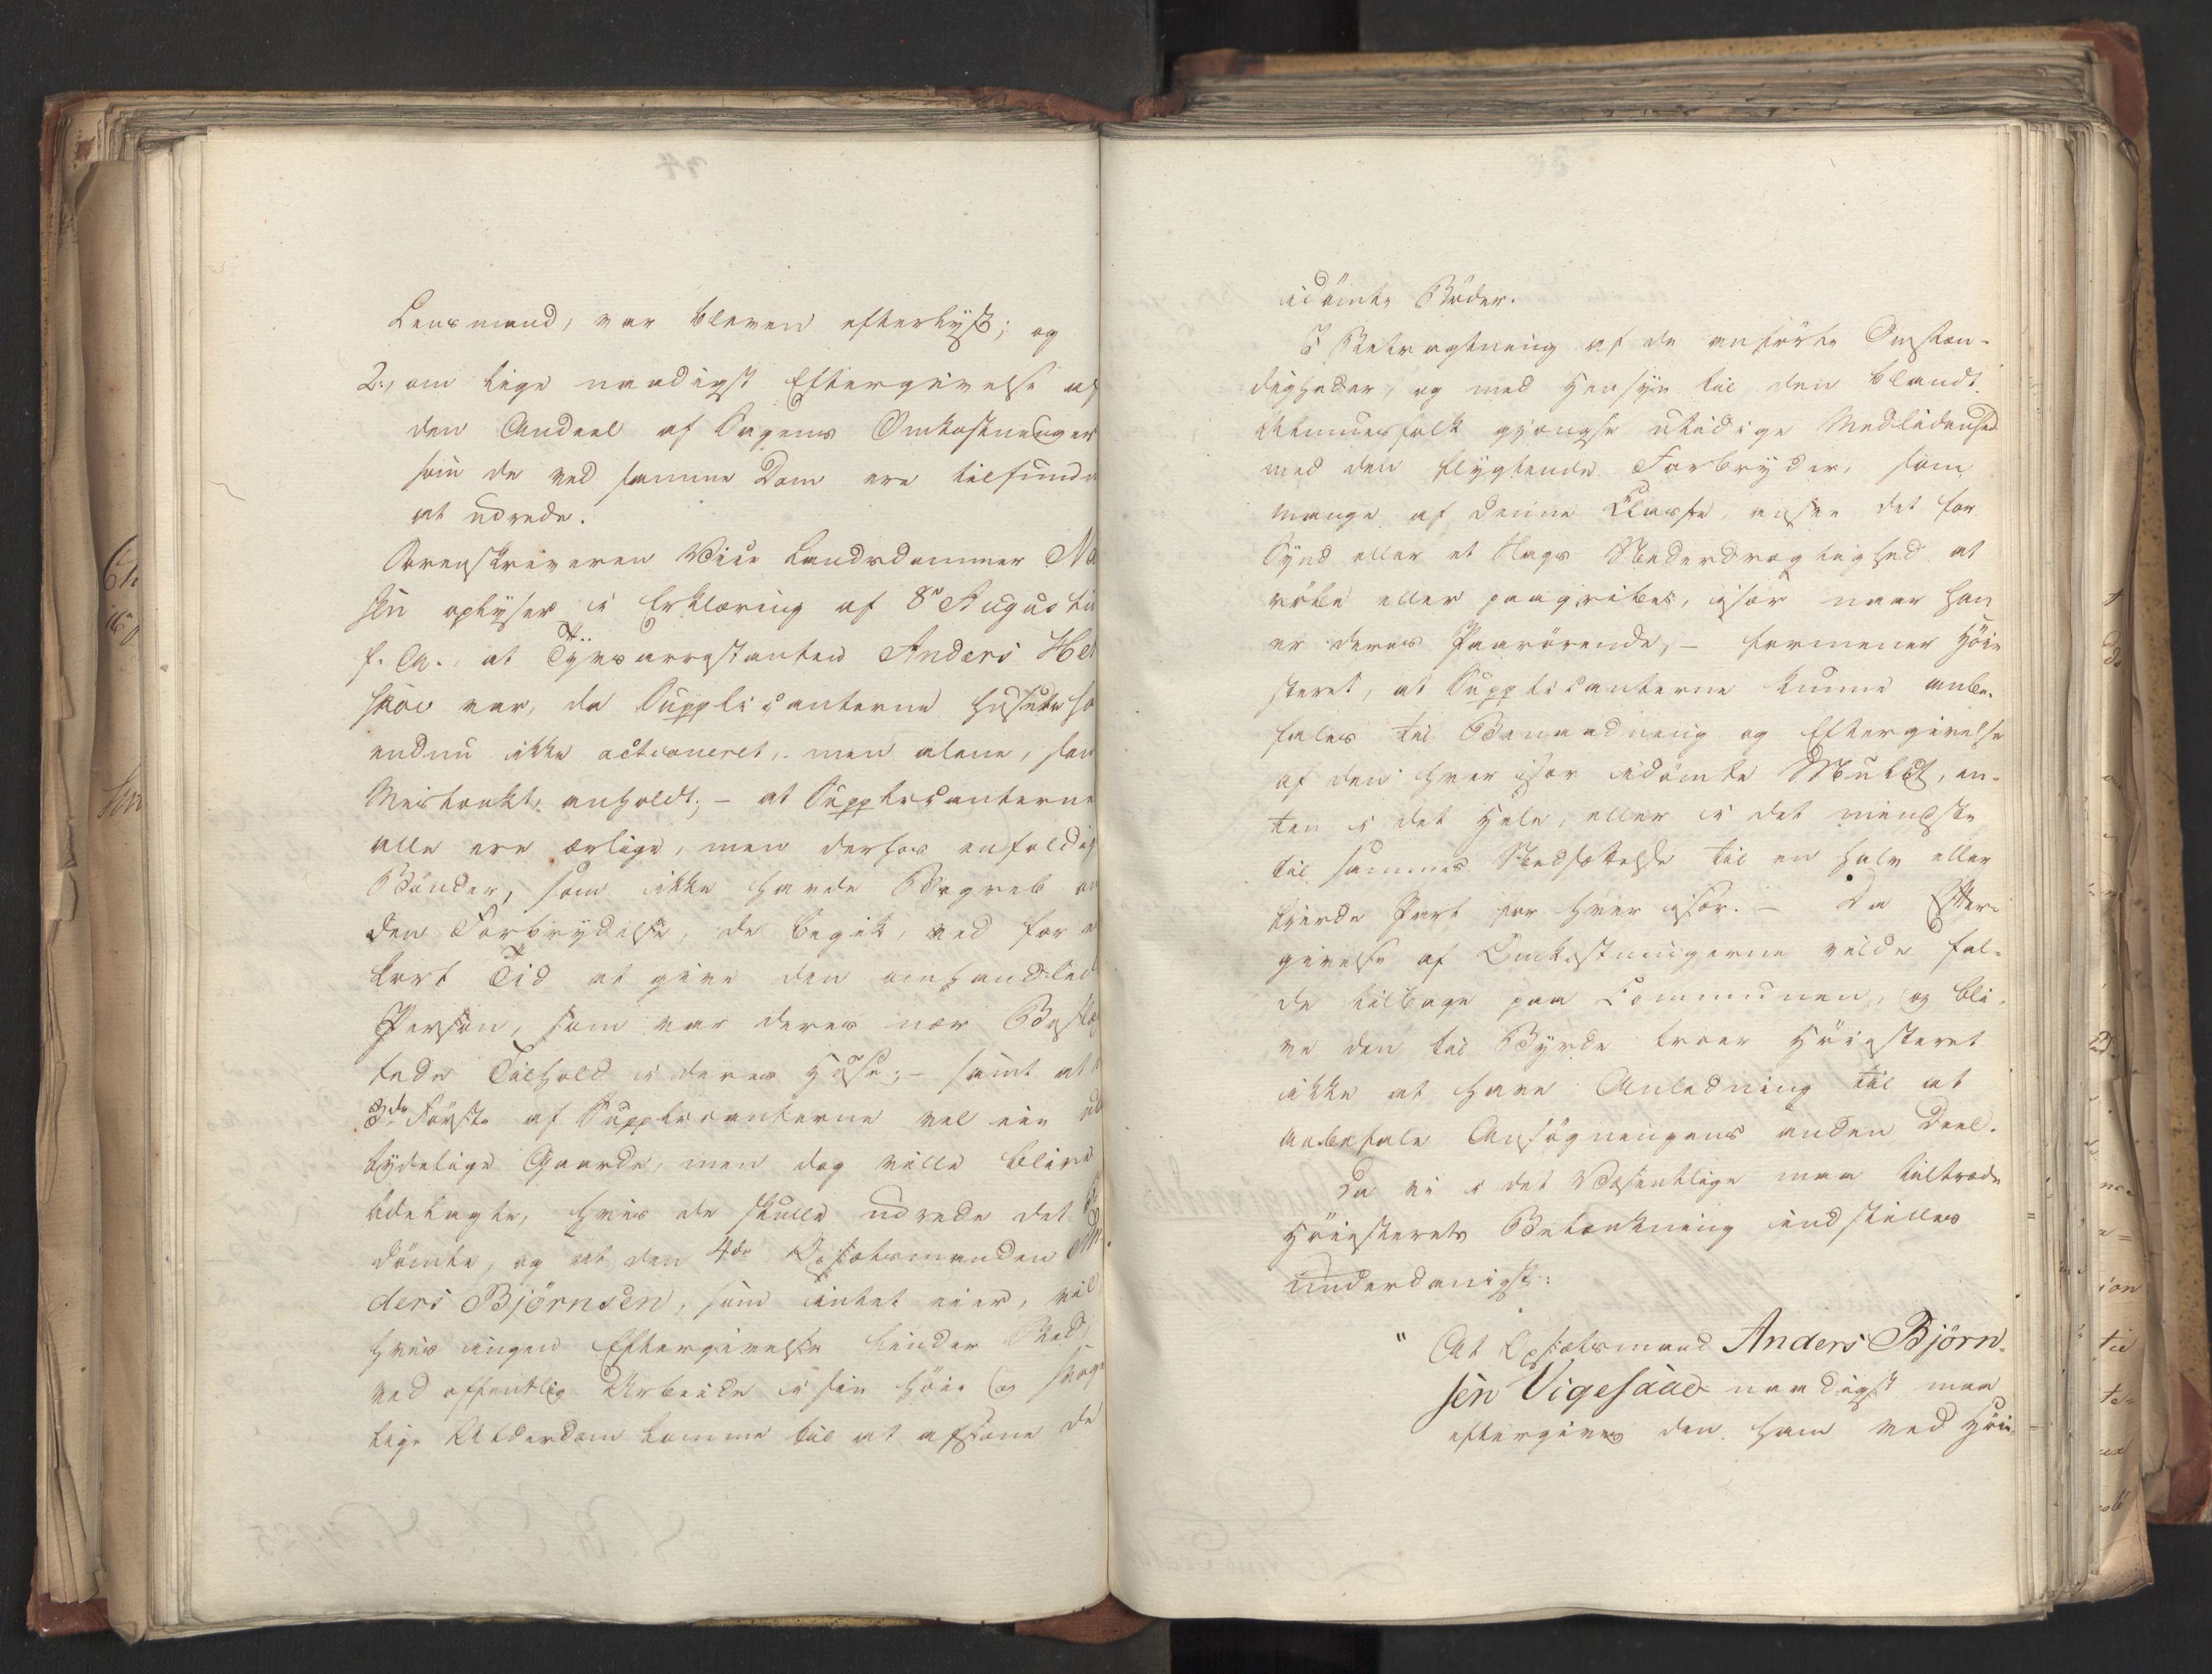 Lensmand, var bleven efterlyst; og
2., om lige naadigst Eftergivelse af
den Andeel af Sagens Omkostninger
som de ved samme Dom ere tilfunde
at udrede.
Sorenskriveren Vice Landsdommer
oplyser i Erklæring af 8de Augusti
f. A. at Tyvsarrestanten Anders Hel
var, da Supplicanterne husede ha
endnu ikke actioneret, men alene, som
Mistænkt, anholdt; – at Supplicanterne
alle ere ærlige, men derhos enfoldig
Bönder, som ikke havde Begreb om
den Forbrydelse, de begik, ved for en
kort Tid at give den omhandlede
Person, som var deres nær Beslæg
tede Tilhold i deres Huse; – samt at
3de Förste af Supplicanterne vel eie ube
tydelige Gaarde, men dog ville blive
ödelagte, hvis de skulle udrede det
dömte, og at den 4de Opsætsmanden An
ders Björnsen, som intet eier, vil
hvis ingen Eftergivelse finder Sted,
ved offentlig Arbeide i sin höie og skröbe
lige Alderdom komme til at afsone de
idömte Böder.
I Betragtning af de anförte Omstæn-
digheder, og med Hensyn til den blandt
Almuesfolk gjængse utidige Medlidenhed
med den flygtende Forbryder, som
mange af denne Classe, ansee det for
Synd eller et Slags Nederdrægtighed at
röbe eller paagribes, især naar han
er deres Paarörende, – formener Höie
steret, at Supplicanterne kunne anbe-
fales til Benaadning og Eftergivelse
af den hver især idömte Mulct, en-
ten i det Hele, eller i det mindste
til sammes Nedsættelse til en halv eller
fjerde Part for hver især. – Da Efter-
givelse af Omkostningerne vilde fal-
de tilbage paa Communen, og bli-
ve den til Byrde troer Höiesteret
ikke at have Anledning til at
anbefale Ansögningens anden Deel.
Da vi i det Væsentlige maa tiltræde
Höiesterets Betænkning indstilles
underdanigst:
" At Opsætsmand Anders Björn-
sen Vigesaae naadigst maa
eftergives den ham ved Höie-